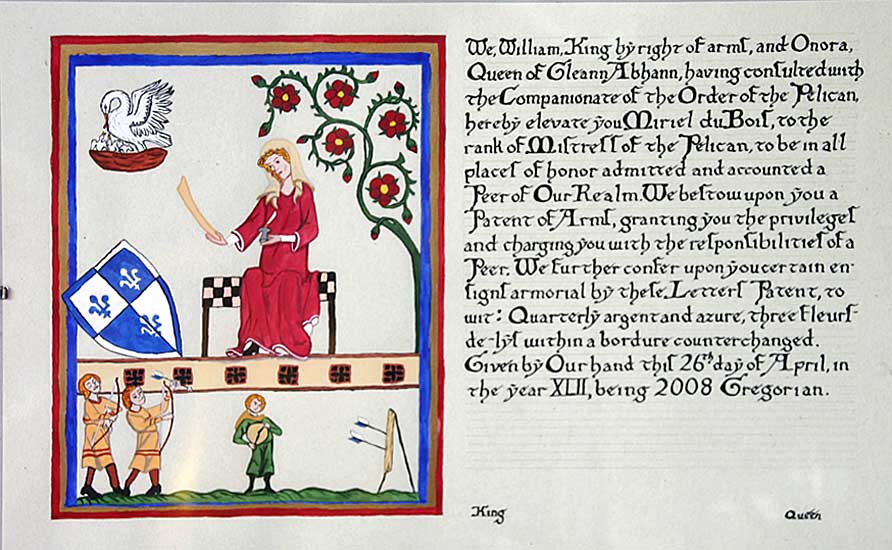 We, William, King by right of arms, and Onora,
Queen of Gleann Abhann, having consulted with
the Companionate of the Order of the Pelican,
hereby elevate you, Miriel du Bois, to the
rank of Mistress of the Pelican, to be in all
places of honor admitted and accounted a
Peer of Our Realm. We bestow upon you a
Patent of Arms, granting you the privileges
and charging you with the responsibilities of a
Peer. We further confer upon you certain en-
signs armorial by these Letters Patent, to
wit: Quarterly argent and azure, three fleurs-
de-lys within a bordure counterchanged.
Given by Our hand this 26th day of April, in
the year XLII, being 2008 Gregorian.
King
Queen